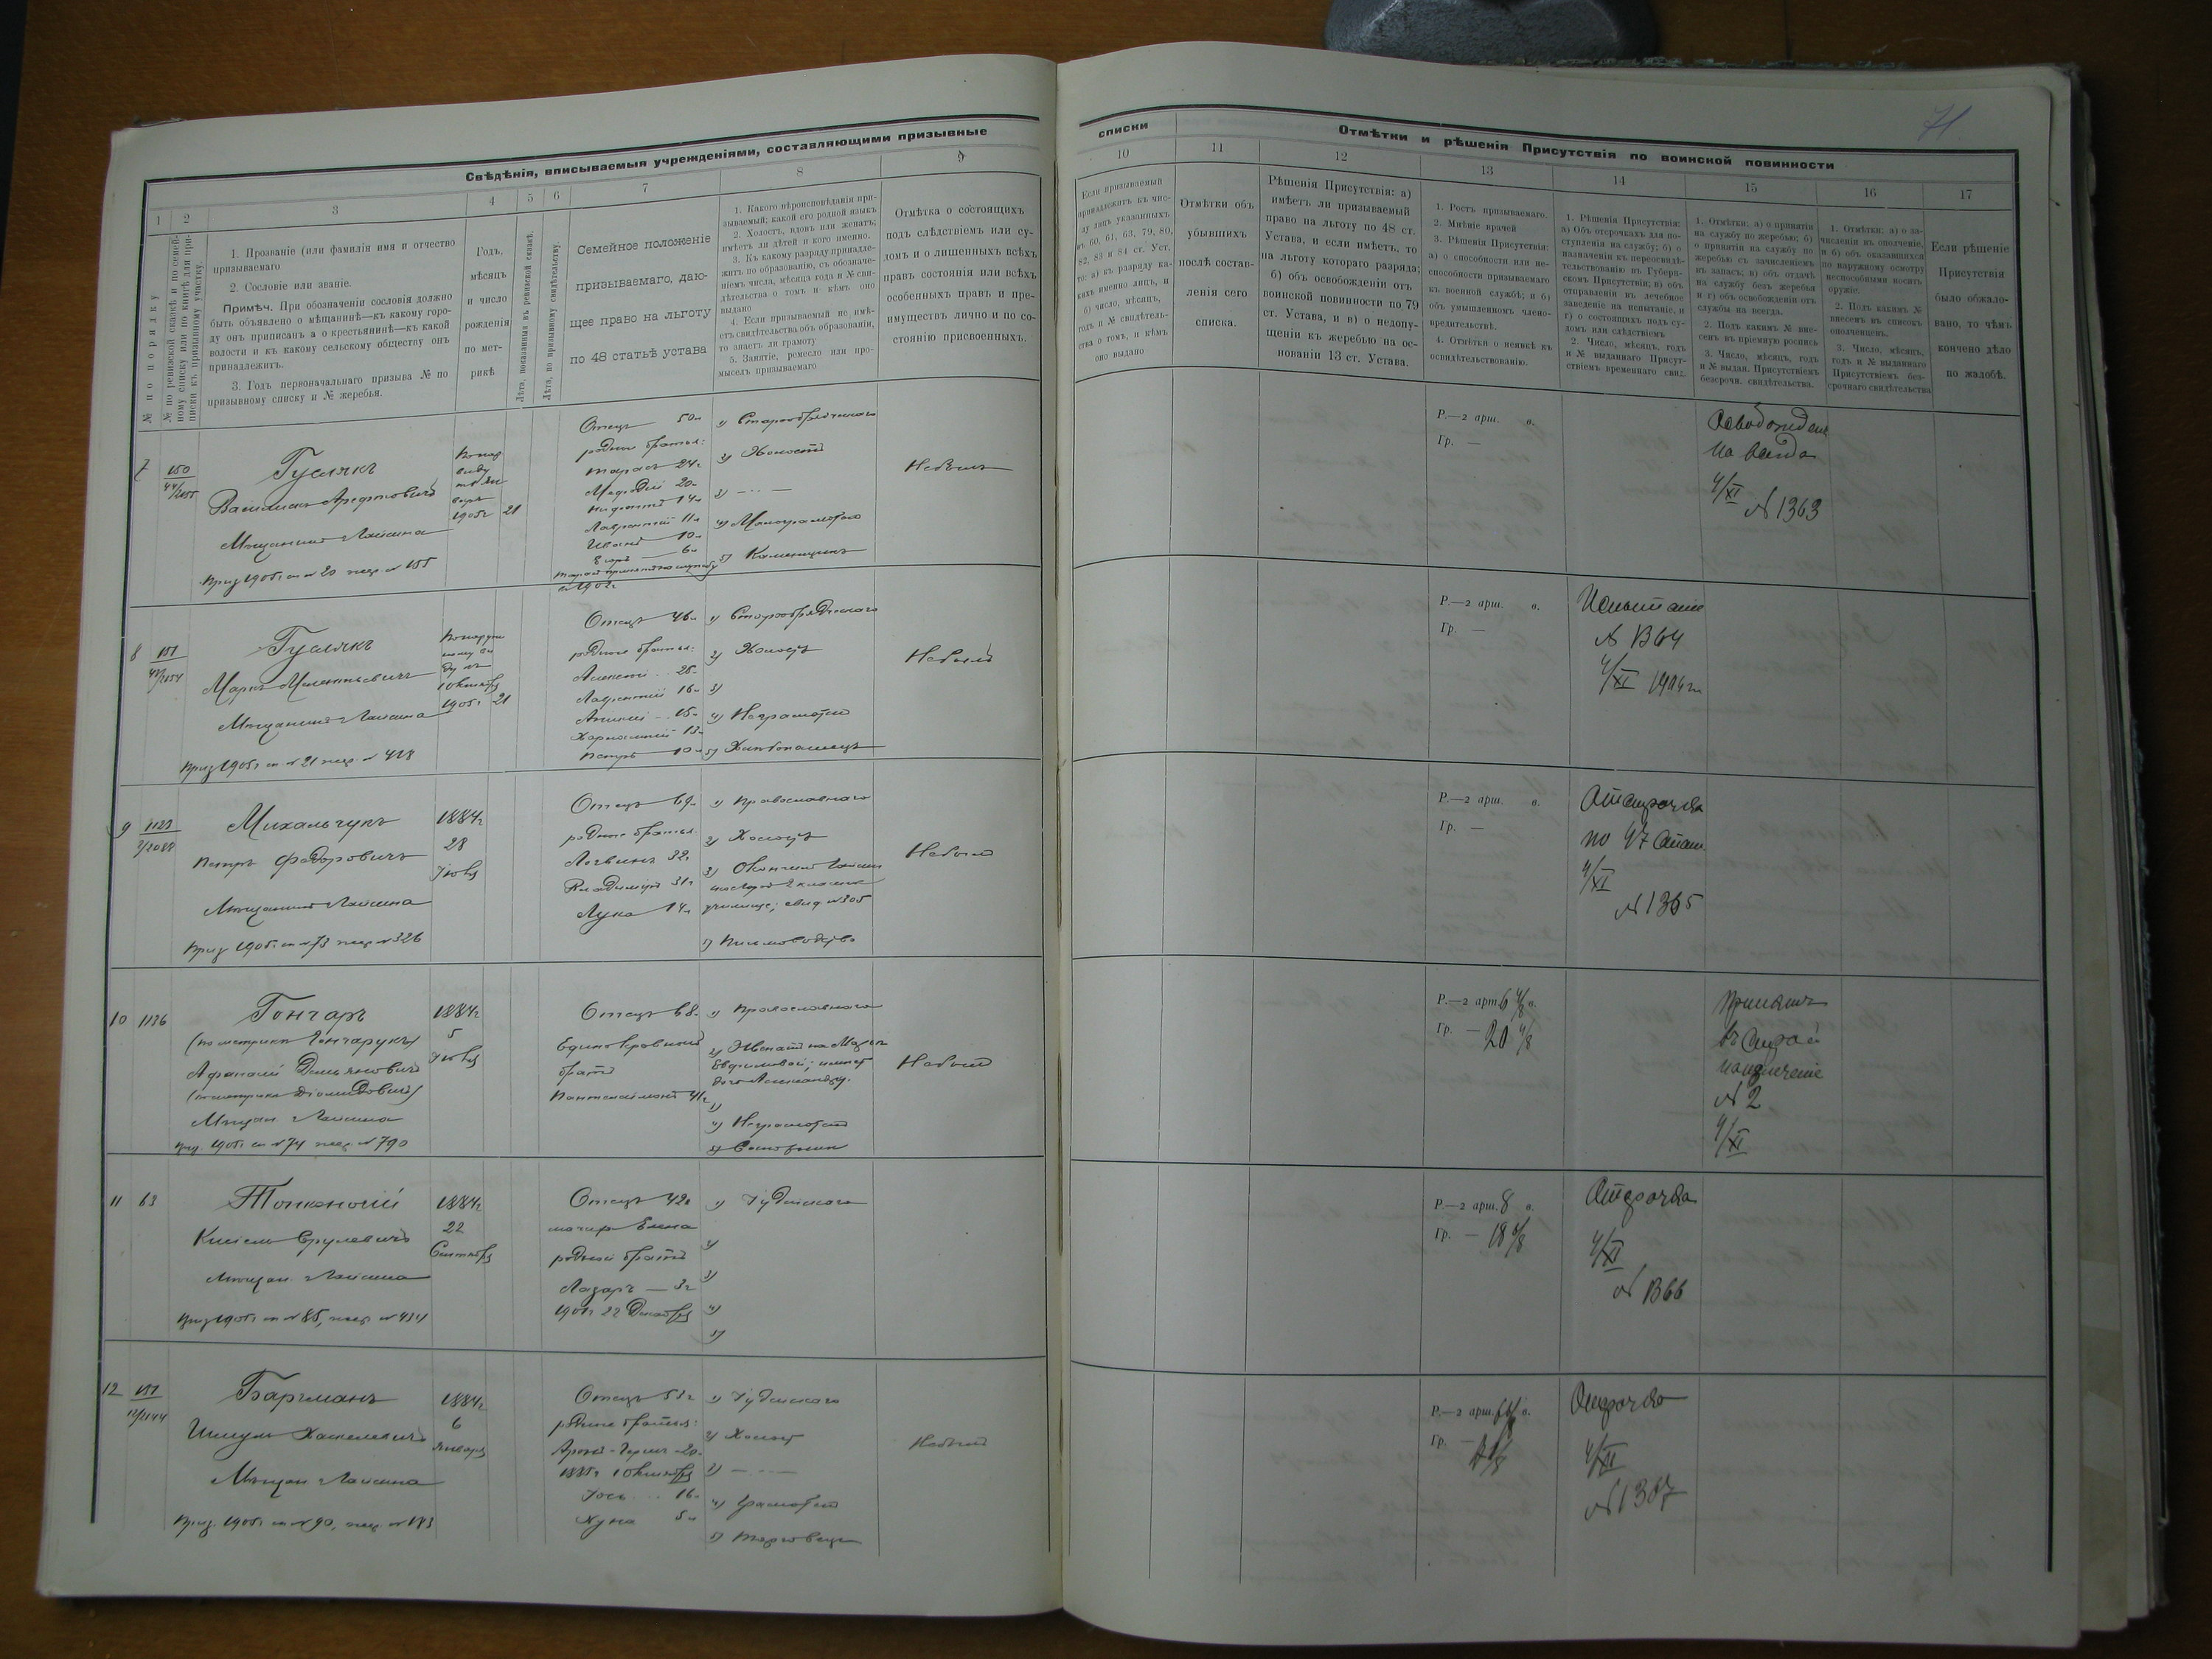 71
Свѣдѣнія, вписываемыя учрежденіями, составляющими призывные
списки
Отмѣтки и рѣшенія Присутствія по воинской повинности
1
2
3
4
5
6
7
8
9
10
11
12
13
14
15
16
17
№ по порядку
№ по ревизской сказкѣ и по семей-
ному списку или по книгѣ для при-
писки къ призывному участку.
1. Прозваніе (или фамилія имя и отчество
призываемаго
2. Сословіе или званіе.
Примѣч. При обозначеніи сословія должно
быть объявлено о мѣщанинѣ—къ какому горо-
ду онъ приписанъ а о крестьянинѣ—къ какой
волости и къ какому сельскому обществу онъ
принадлежитъ.
3. Годъ первоначальнаго призыва № по
призывному списку и № жеребья.
Годъ,
мѣсяцъ
и число
рожденія
по мет-
рикѣ
Лѣта, показанныя въ ревизской сказкѣ.
Лѣта, по призывному свидѣтельству.
Семейное положеніе
призываемаго, даю-
щее право на льготу
по 48 статьѣ устава
1. Какого вѣроисповѣданія при-
зываемый; какой его родной языкъ
2. Холостъ, вдовъ или женатъ;
имѣетъ ли дѣтей и кого именно.
3. Къ какому разряду принадле-
житъ по образованію, съ обозначе-
ніемъ числа, мѣсяца года и № сви-
дѣтельства о томъ и кѣмъ оно
выдано
4. Если призываемый не имѣ-
етъ свидѣтельства объ образованіи,
то знаетъ ли грамоту
5. Занятіе, ремесло или про-
мыселъ призываемаго
Отмѣтка о состоящихъ
подъ слѣдствіемъ или су-
домъ и о лишенныхъ всѣхъ
правъ состоянія или всѣхъ
особенныхъ правъ и пре-
имуществъ лично и по со-
стоянію присвоенныхъ.
Если призываемый
принадлежитъ къ чис-
лу лицъ указанныхъ
въ 60, 61, 63, 79, 80,
82, 83 и 84 ст. Уст.
то: а) къ разряду ка-
кихъ именно лицъ, и
б) число, мѣсяцъ,
годъ и № свидѣтель-
ства о томъ, и кѣмъ
оно выдано
Отмѣтки объ
убывшихъ
послѣ состав-
ленія сего
списка.
Рѣшенія Присутствія: а)
имѣетъ ли призываемый
право на льготу по 48 ст.
Устава, и если имѣетъ, то
на льготу котораго разряда;
б) объ освобожденіи отъ
воинской повинности по 79
ст. Устава, и в) о недопу-
щеніи къ жеребью на ос-
нованіи 13 ст. Устава.
1. Ростъ призываемаго.
2. Мнѣніе врачей
3. Рѣшенія Присутствія:
а) о способности или не-
способности призываемаго
къ военной службѣ; и б)
объ умышленномъ члено-
вредительствѣ.
4. Отмѣтки о неявкѣ къ
освидѣтельствованію.
1. Рѣшенія Присутствія:
а) Объ отсрочкахъ для по-
ступленія на службу; б) о
назначеніи къ переосвидѣ-
тельствованію въ Губерн-
скомъ Присутствіи; в) объ
отправленіи въ лечебное
заведеніе на испытаніе, и
г) о состоящихъ подъ су-
домъ или слѣдствіемъ
2. Число, мѣсяцъ, годъ
и № выданнаго Присут-
ствіемъ временнаго свид.
1. Отмѣтки: а) о принятіи
на службу по жеребью; б)
о принятіи на службу по
жеребью съ зачисленіемъ
въ запасъ; в) объ отдачѣ
на службу безъ жеребья
и г) объ освобожденіи отъ
службы на всегда.
2. Подъ какимъ № вне-
сенъ въ пріемную роспись
3. Число, мѣсяцъ, годъ
и № выдан. Присутствіемъ
безсрочн. свидѣтельства.
1. Отмѣтки: а) о за-
численіи въ ополченіе,
и б) объ оказавшихся
по наружному осмотру
неспособными носить
оружіе.
2. Подъ какимъ №
внесенъ въ списокъ
ополченцевъ.
3. Число, мѣсяцъ,
годъ и № выданнаго
Присутствіемъ без-
срочнаго свидѣтельства
Если рѣшеніе
Присутствія
было обжало-
вано, то чѣмъ
кончено дѣло
по жалобѣ.
7
150
Гуслякъ
Василискъ Арефтовичъ
Мѣщанинъ Гайсина
Приз 1905г сп № 20 жер. № 155
1905г 21
Отецъ 50л
родные братья:
Тарасъ 24г
Мефодій 20л
14л
Лаврентій 11л
Иванъ 10л
Егоръ — 6л
1) Старообрядческаго
2) Холостъ
3) — ·· —
4) Малограмотенъ
5) Каменщикъ
Небылъ
Р.—2 арш. в.
Гр. —
Освобожденъ
на всегда
4/XI
№ 1363
8
151
Гуслякъ
Маркъ Мелентьевичъ
Мѣщанинъ Гайсина
Приз 1905г сп № 21 жер. № 428
1 Октября
1905г 21
Отецъ 46л
родные братья:
Алексѣй .. 25л
Лаврентій 16л
15л
Харлампій 13л
Петръ — 10л
1) Старообрядческаго
2) Холостъ
3)
4) Неграмотенъ
5) Хлѣбопашецъ
Небылъ
Р.—2 арш. в.
Гр. —
Испытаніе
№ 1364
4/XI
9
Михальчукъ
Петръ Федоровичъ
Мѣщанинъ Гайсина
Приз 1905г сп № 73 жер № 326
1884г
28
Іюля
Отецъ 69л
родные братья
Логвинъ 32г
Владиміръ 31г
Лука 14л
1) Православнаго
2) Холостъ
3) Окончилъ Гайсин
2 класное
училище; свид № 305
5) Письмоводство
Небылъ
Р.—2 арш. в.
Гр. —
Отсрочка
по 47 Стат.
4/XI
№ 1365
10
1136
Гончаръ
(по метрикѣ Гончарукъ)
Афанасій Демьяновичъ
(по метрикѣ Діомидовичъ)
Мѣщан. Гайсина
Приз. 1905г сп № 74 жер. № 790
1884г
5
Іюля
Отецъ 68л
Единокровный
братъ
Пантелеймонъ 41г
1) Православнаго
2) Женатъ на
Евфимовой; имѣетъ
дочь Александру.
3)
4) Неграмотенъ
Небылъ
Р.—2 арш 6 4/8 в.
Гр. — 20 4/8
Принятъ
въ Строй
назначеніе
№ 2
4/XI
11
63
Тополочій
Кисель Срулевичъ
Мѣщан. Гайсина
Приз 1905г сп № 85, жер. № 434
1884г
22
Сентября
Отецъ 42г
матерь Елена
родной братъ
Лазарь — 3г
1901г 22 Декабря
1) Іудейскаго
2)
3)
4)
5)
Р.—2 арш. 8 в.
Гр. — 18
Отсрочка
4/XI
№ 1366
12
Баргманъ
Шмуль Хаскелевичъ
Мѣщан Гайсина
Приз. 1905г сп № 90, жер. № 183
1884г
6
Января
Отецъ 53г
родные братья:
Аронъ-Гершъ - 20л
1885г 1 Октября
Іось ... 16л
5л
1) Іудейскаго
2) Холостъ
3) — ·· —
4) Грамотенъ
5) Торговецъ
Небылъ
Р.—2 арш. в.
Гр. —
Отсрочка
4/XI
№ 1367